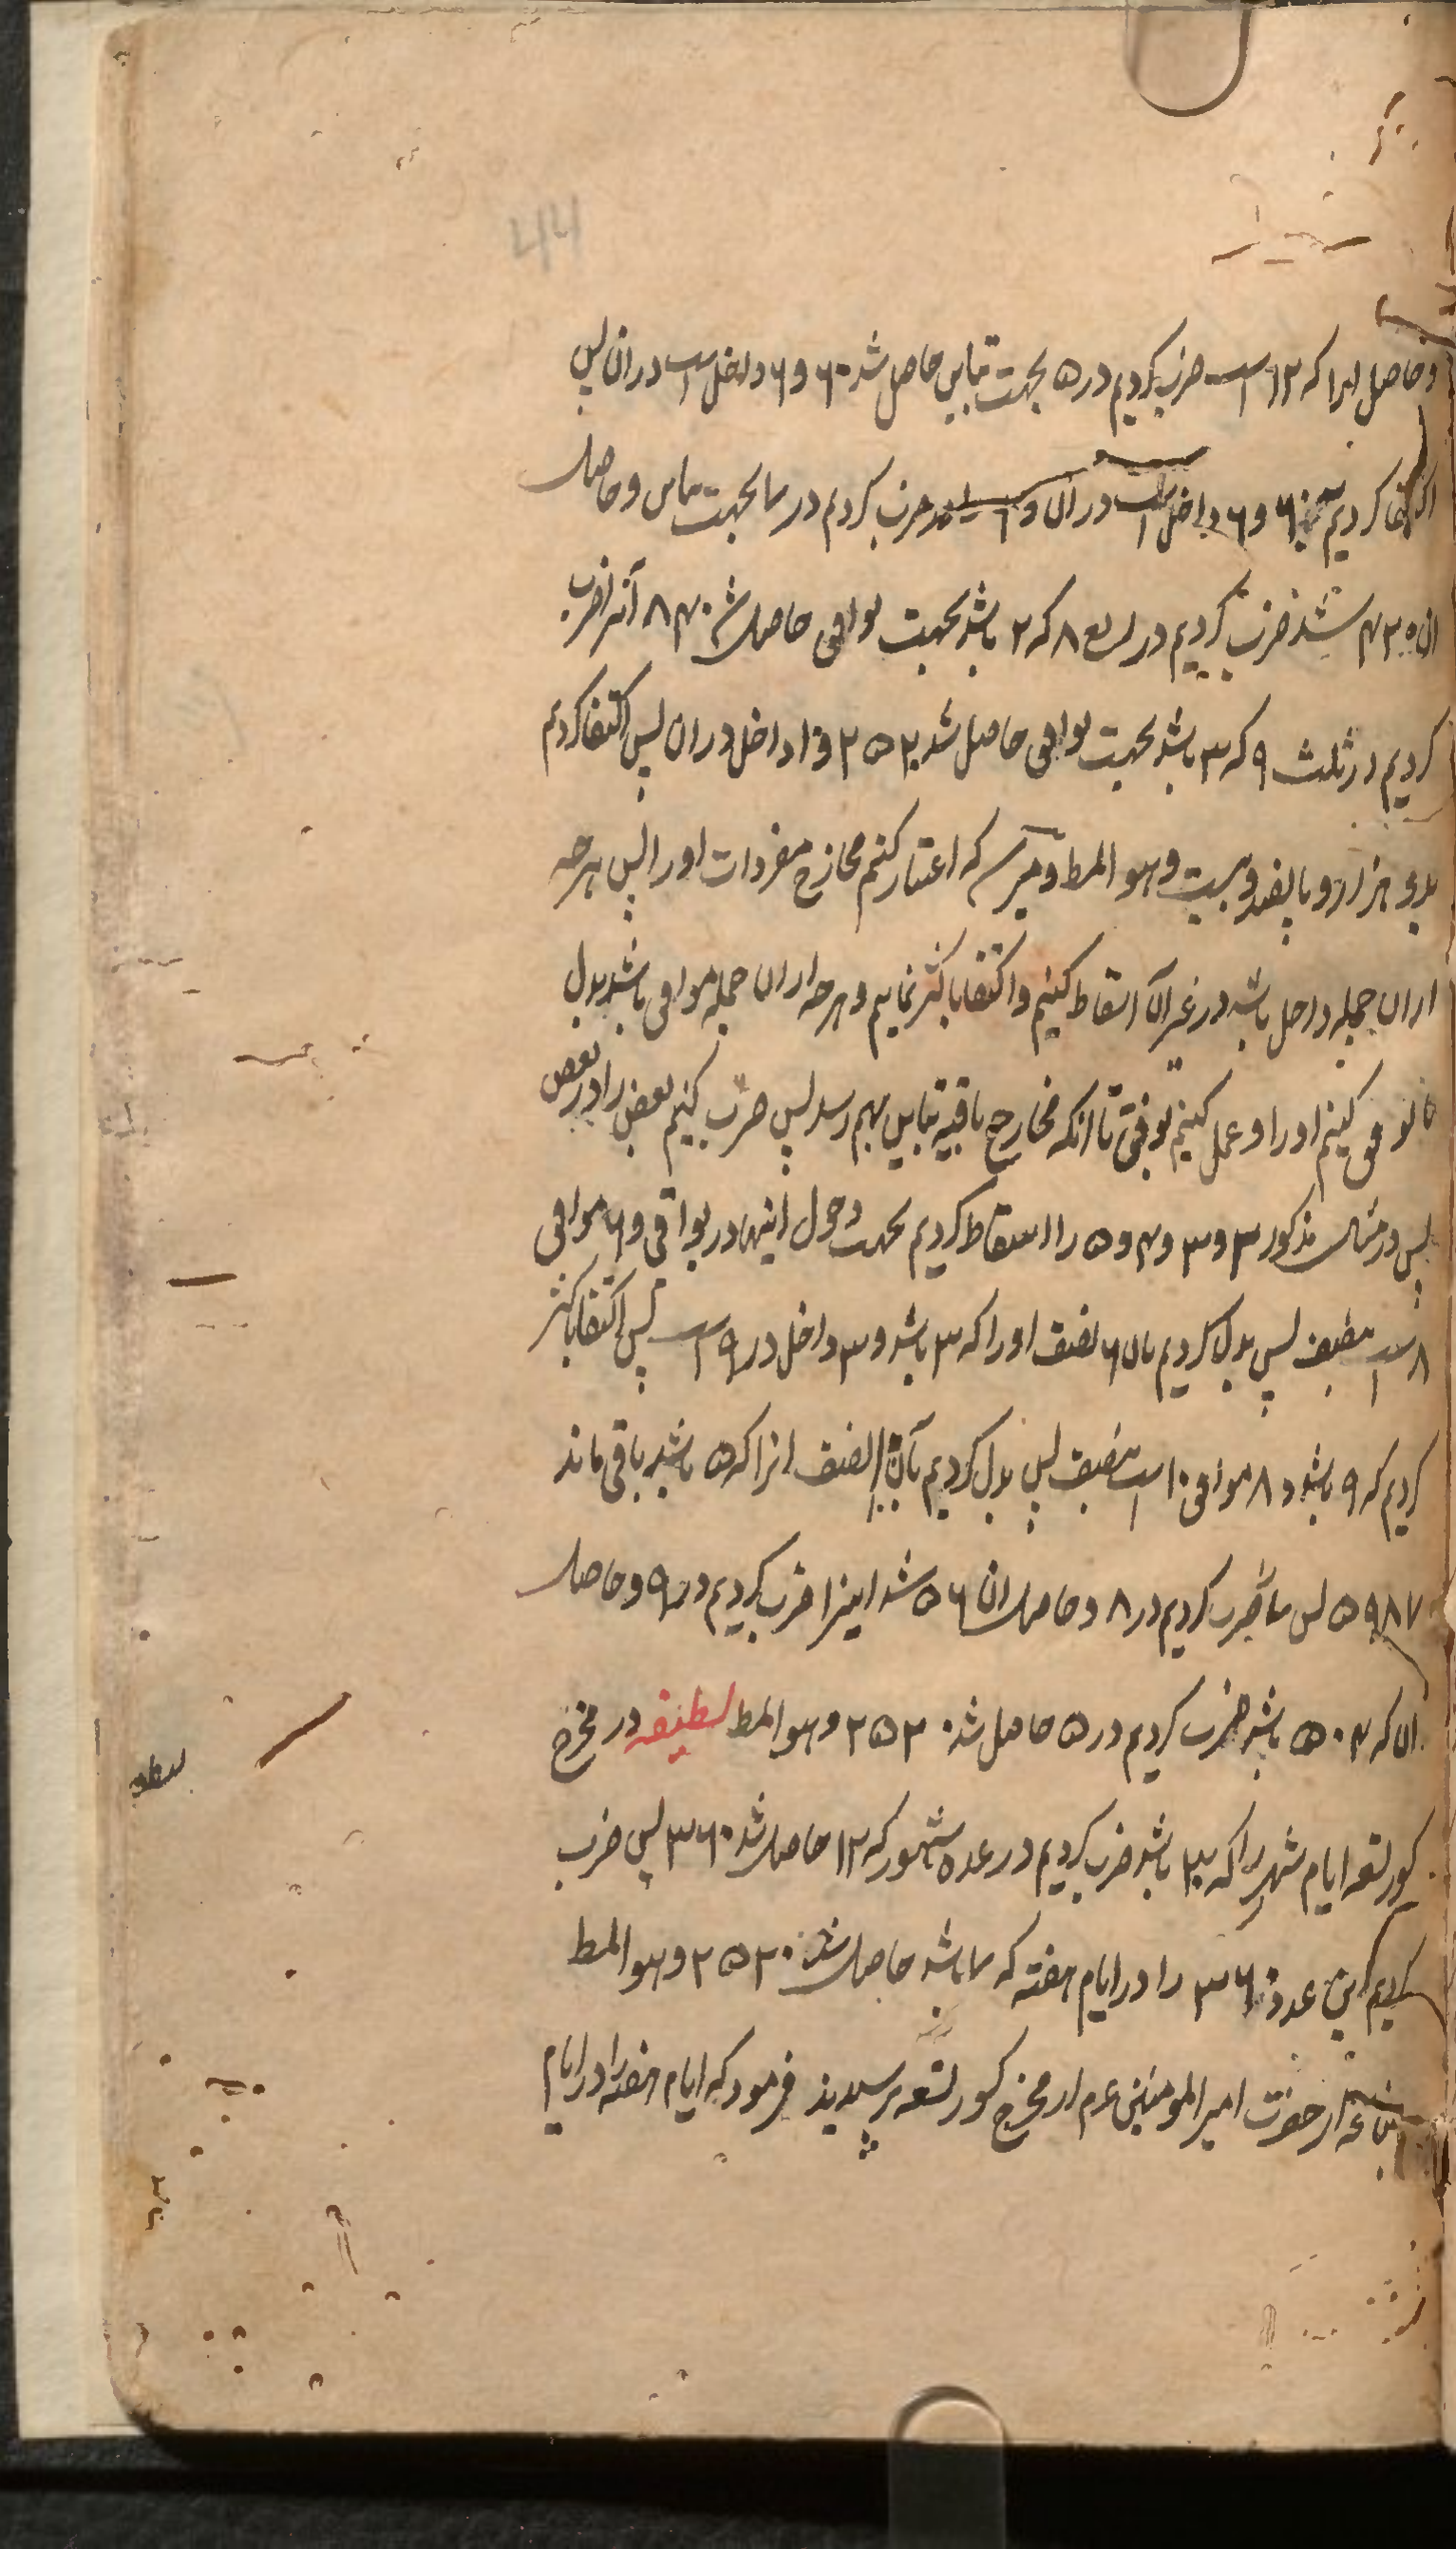 44
و حاصل انرا که ۱۲ است ضرب کردیم در ۵ بجهت تباین حاصل شد ۶۰ و ۶ داخل است در ان پس
اکتفا کردیم به ۶۰ و ۶ داخل است در ان و ضرب کردیم در ۷ بجهت تباین و حاصل
ان ۴۲۰ شد ضرب کردیم در ربع ۸ که ۲ باشد بجهت توافق حاصل شد ۸۴۰ آنرا ضرب
کردیم در ثلث ۹ که ۳ باشد بجهت توافق حاصل شد ۲۵۲۰ و ۱۰ داخل در ان پس اکتفا کردیم
بدو هزار و پانصد و بیست و هو المط و میرسد که اعتبار کنیم مخارج مفردات او را پس هرچه
از ان جمله داخل باشد در غیر آن اسقاط کنیم و اکتفا باکثر نماییم و هرچه از ان جمله موافق باشد بدل
کنیم او را و عمل کنیم بوفق تا آنکه مخارج باقیه تباین بهم رسد پس ضرب کنیم بعض را در بعض
پس در مثال مذکور ۲ و ۳ و ۴ و ۵ را اسقاط کردیم بجهت دخول اینها در بواقی و ۶ موافق
۸ است بنصف پس بدل کردیم بان ۶ نصف او را که ۳ باشد و ۳ داخل در ۹ است پس اکتفا باکثر
کردیم که ۹ باشد و ۸ موافق ۱۰ است بنصف پس بدل کردیم بان ۱۰ نصف انرا که ۵ باشد باقی ماند
۷ ۸ ۹ ۵ پس ۷ را ضرب کردیم در ۸ و حاصل ان ۵۶ شد اینرا ضرب کردیم در ۹ و حاصل
ان که ۵۰۴ باشد ضرب کردیم در ۵ حاصل شد ۲۵۲۰ و هو المط لطیفه در مخرج
کسور تسعه ایام شهر را که ۳۰ باشد ضرب کردیم در عده شهور که ۱۲ حاصل شد ۳۶۰ پس ضرب
کردیم این عدد ۳۶۰ را در ایام هفته که ۷ باشد حاصل شد ۲۵۲۰ و هو المط
از حضرت امیر المومنین عم از مخرج کسور تسعه پرسیدند فرمود که ایام هفته را در ایام